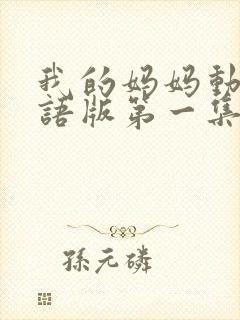 我的妈妈動
語版第一集
孫元磷